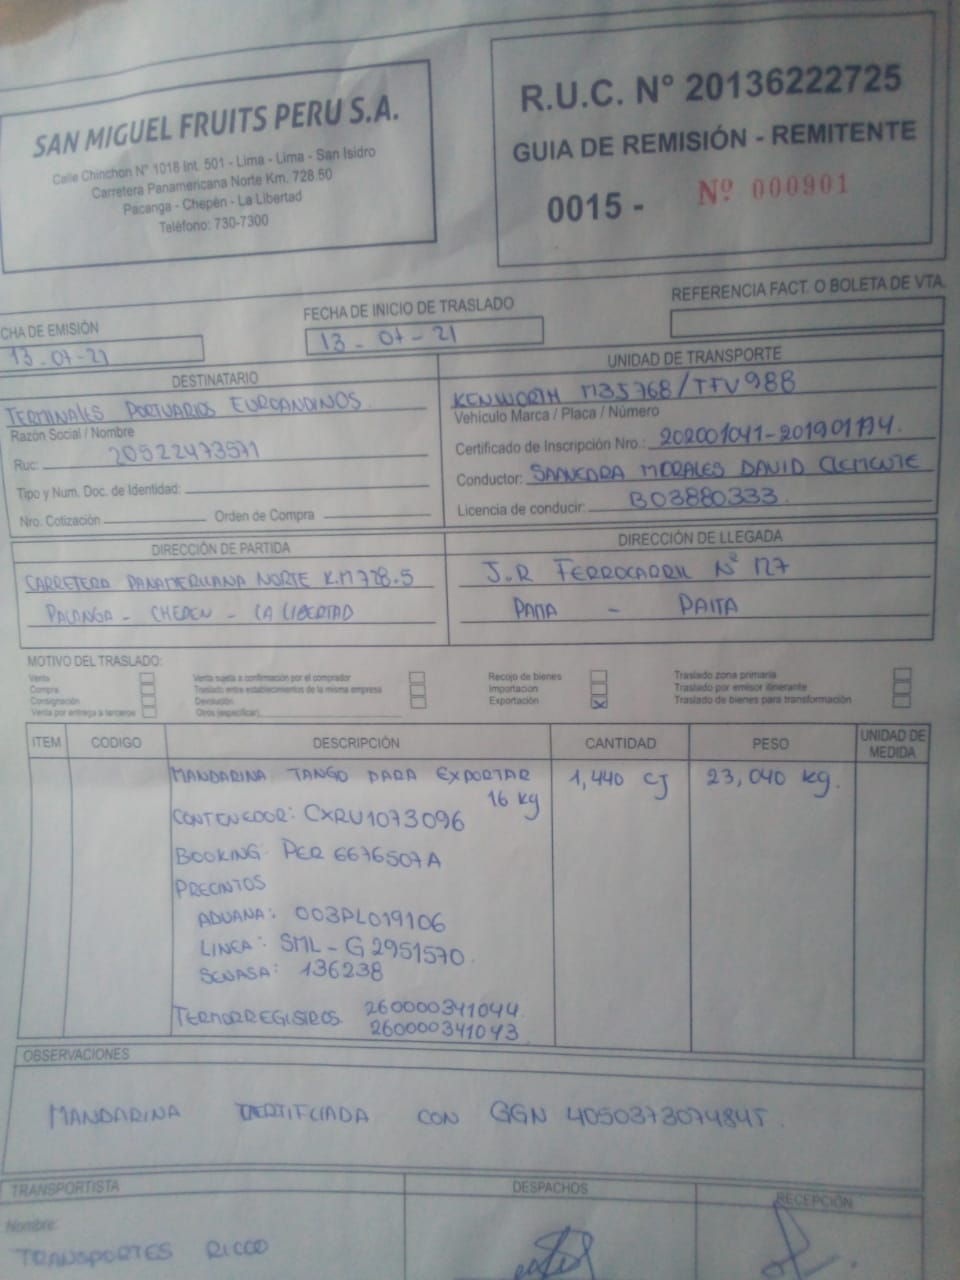 SAN MIGUEL FRUITS PERU S.A.
Calle Chinchon N° 1018 Int. 501 - Lima - Lima - San Isidro
Carretera Panamericana Norte Km. 728.50
Pacanga - Chepén - La Libertad
Teléfono: 730-7300
R.U.C. N° 20136222725
GUIA DE REMISIÓN - REMITENTE
0015 - Nº 000901
CHA DE EMISIÓN
13-07-21
FECHA DE INICIO DE TRASLADO
13 - 07 - 21
REFERENCIA FACT. O BOLETA DE VTA.
DESTINATARIO
TERMINALES PORTUARIOS EUROANDINOS
Razón Social / Nombre
Ruc: 20522473571
Tipo y Num. Doc. de Identidad:
Nro. Cotización Orden de Compra
UNIDAD DE TRANSPORTE
KENWORTH M35768/TFV988
Vehículo Marca / Placa / Número
Certificado de Inscripción Nro.:
Conductor: SAAVEDRA MORALES DAVID CLEMENTE
Licencia de conducir: B03880333
DIRECCIÓN DE PARTIDA
CARRETERA PANAMERICANA NORTE K.M 728.5
PACANGA - CHEPEN - LA LIBERTAD
DIRECCIÓN DE LLEGADA
J.R FERROCARRIL Nº 127
PAITA - PAITA
MOTIVO DEL TRASLADO:
Venta
Compra
Consignación
Venta por entrega a terceros
Venta sujeta a confirmación por el comprador
Traslado entre establecimientos de la misma empresa
Devolución
Otros (especificar)
Recojo de bienes
Importacion
Exportación
Traslado zona primaria
Traslado por emisor itinerante
Traslado de bienes para transformación
ITEM CODIGO DESCRIPCIÓN CANTIDAD PESO UNIDAD DE MEDIDA
MANDARINA TANGO PARA EXPORTAR 1,440 CJ 23,040 kg.
16 kg
CONTENEDOR: CXRU1073096
BOOKING PER 6676507A
PRECINTOS
ADUANA: 003PL019106
LINEA: SML - G2951570
SENASA: 136238
TERMORREGISTROS 260000341044
260000341043
OBSERVACIONES
MANDARINA CON GGN 4050373074845
TRANSPORTISTA
DESPACHOS
RECEPCIÓN
Nombre:
TRANSPORTES RICCO